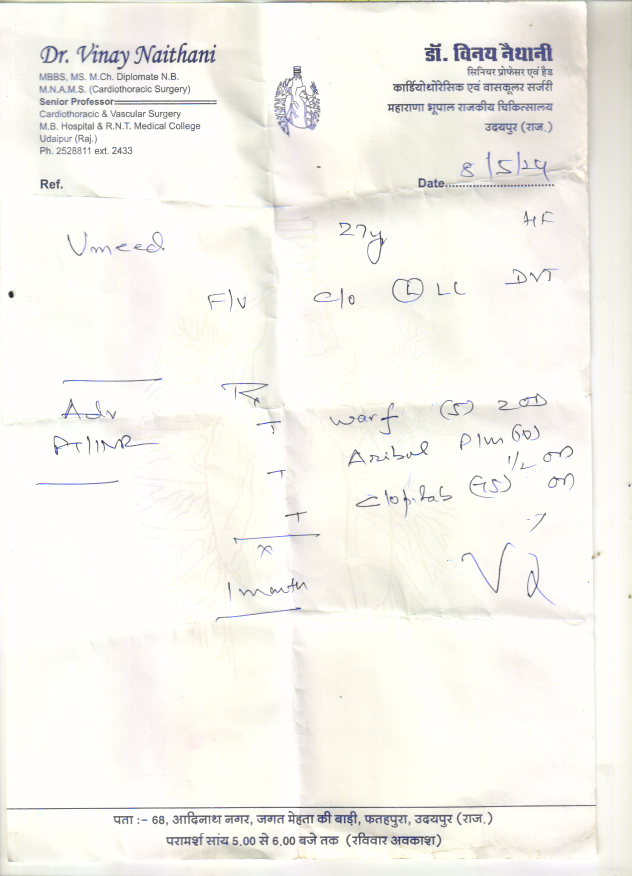 Dr. Vinay Naithani
MBBS, MS. M.Ch. Diplomate N.B.
M.N.A.M.S. (Cardiothoracic Surgery)
Senior Professor
Cardiothoracic & Vascular Surgery
M.B. Hospital & R.N.T. Medical College
Udaipur (Raj.)
Ph. 2528811 ext. 2433
डॉ. विनय नैथानी
सिनियर प्रोफेसर एवं हैड
कार्डियोथोरेसिक एवं वासकूलर सर्जरी
महाराणा भूपाल राजकीय चिकित्सालय
उदयपुर (राज.)
Ref.
Date 8/5/24
Umeed 27y
F/U C/O (L) LL DVT
Adv
PT/INR
Rx
T warf (5) 2 OD
T Plus (10) 1/2 OD
T Clopitab (75) OD
x
1 month
पता :- 68, आदिनाथ नगर, जगत मेहता की बाड़ी, फतहपुरा, उदयपुर (राज.)
परामर्श सांय 5.00 से 6.00 बजे तक (रविवार अवकाश)